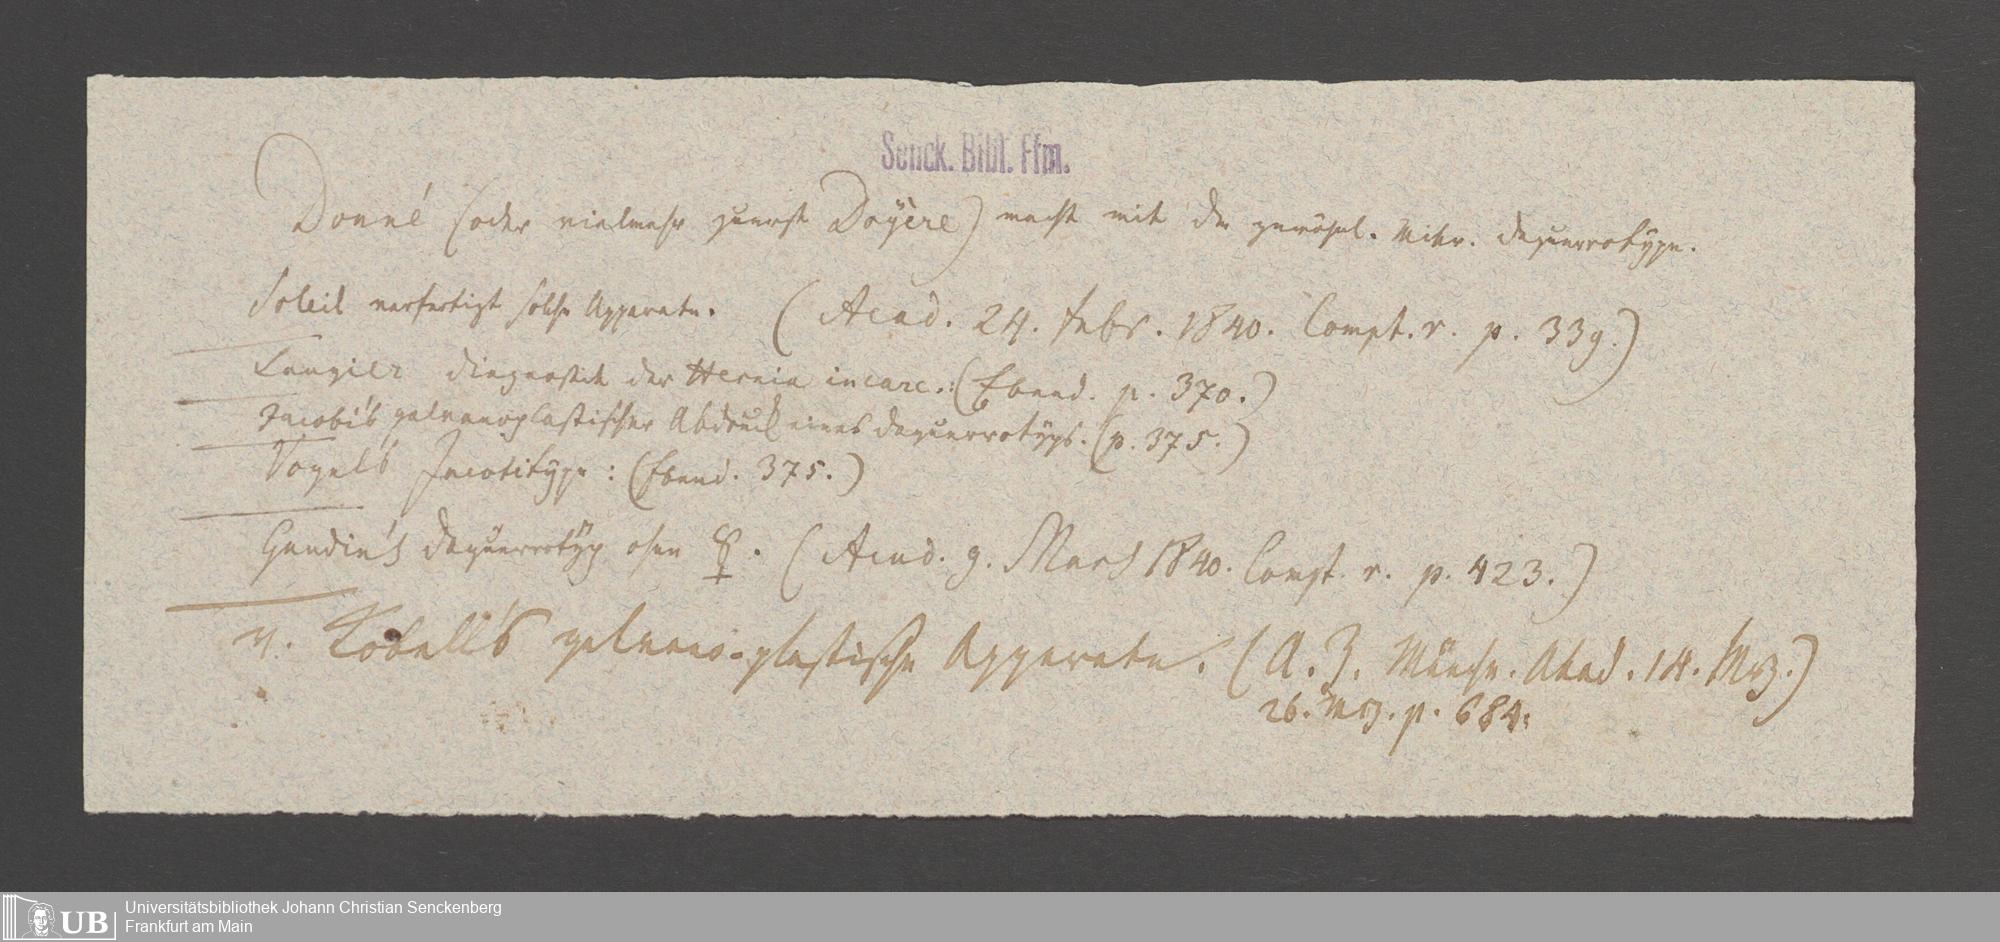 Senck. Bibl. Ffm.
Donné (oder vielmehr zuerst Doÿère) macht mit der gewöhnl. Mikr. daguerrotÿpe.
Soleil verfertigt solche Apparate. (Acad. 24. febr. 1840. Compt. r. p. 339.)
Laugier diagnostik der Hernia incarc.: (Ebend. p. 370.)
Jacobi's galvanoplastischer Abdruck eines daguerrotÿps. (p. 375.)
Vogel's : (Ebend. 375.)
Gaudin's daguerrotÿp ohne ☿. (Acad. 9. Mars 1840. Compt. r. p. 423.)
v. Kobell's galvano-plastische Apparate. (A. Z. Münchn. Akad. 14. Mrz.)
26. Mrz. p. 684.
UB
Universitätsbibliothek Johann Christian Senckenberg
Frankfurt am Main